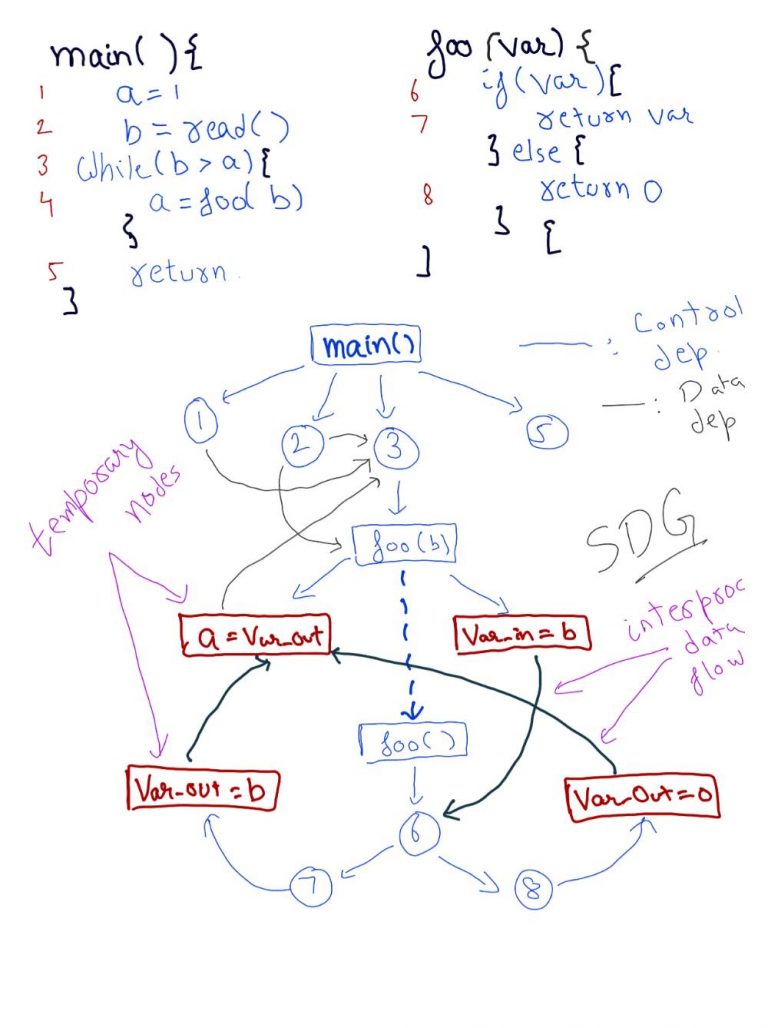 main( ){
1 a = 1
2 b = read( )
3 while(b > a){
4 a = foo( b)
}
5 return
}
foo (var) {
6 if (var) {
7 return var
} else {
8 return 0
} {
}
main()
: Control
dep.
: Data
dep
1
2
3
5
temporary
nodes
foo(b)
SDG
a = Var_out
Var_in = b
interproc
data
flow
foo( )
Var_out = b
Var_Out = 0
6
7
8